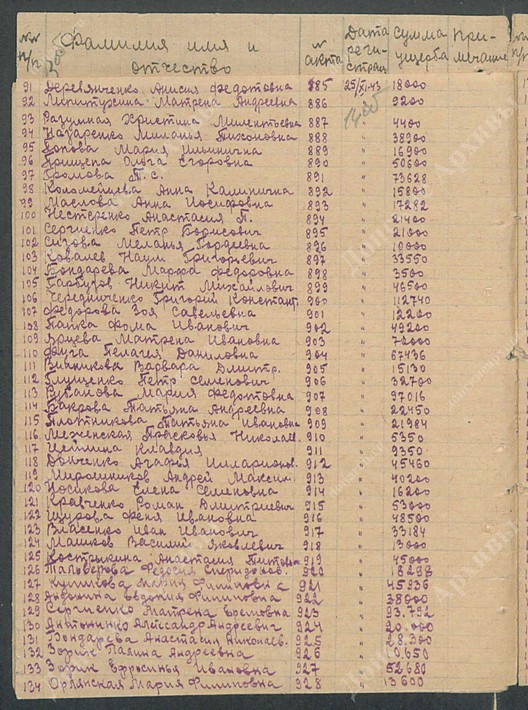 №№ п/п Фамилия имя и отчество № акта Дата регистрации сумма ущерба Примечание
91 Деревянченко Анисия Федотовна 885 25/XI-43 18000
92 Матрена Андреевна 886 " 9200
93 Разумная Христина 887 " 4400
94 Назаренко Миланья Тихоновна 888 " 38900
95 Попова Мария Ильинична 889 " 16900
96 Прищепа Ольга Егоровна 890 " 50600
97 Громова П. С. 891 " 73628
98 Коломейцева Анна Калинична 892 " 15800
99 Маслова Анна Иосифовна 893 " 17282
100 Нестеренко Анастасия П. 894 " 21400
101 Сергиенко Петр Борисович 895 " 21000
102 Сизова Меланья Гордеевна 896 " 10000
103 Ковалев Наум Григорьевич 897 " 33550
104 Бондарева Марфа Федоровна 898 " 3500
105 Никит Михайлович 899 " 46500
106 Чередниченко Григорий Констант. 900 " 112740
107 Федорова Зоя Савельевна 901 " 12200
108 Папка Фома Иванович 902 " 49200
109 Ярцева Матрена Ивановна 903 " 72000
110 Дуга Пелагея Даниловна 904 " 67436
111 Винникова Варвара Дмитр. 905 " 15130
112 Глущенко Петр Семенович 906 " 32700
113 Русанова Мария Федотовна 907 " 97016
114 Бакрова Татьяна Андреевна 908 " 22450
115 Плотникова Татьяна Ивановна 909 " 21984
116 Меженская Прасковья Николаев. 910 " 5350
117 Клавдия 911 " 9350
118 Донченко Агафья Илларионов. 912 " 45460
119 Мирошников Андрей Максим. 913 " 40200
120 Носикова Елена Семеновна 914 " 16200
121 Кравченко Роман Дмитриевич 915 " 53000
122 Щирова Феня Ивановна 916 " 48500
123 Власенко Иван Иванович 917 " 33184
124 Машков Василий Яковлевич 918 " 13000
125 Кострыкина Анастасия Питовна 919 " 45000
126 Тальверова Спиридонов. 920 " 18298
127 921 " 45936
128 Евдокия Филиповна 922 " 38000
129 Сергиенко Матрена 923 " 93.752
130 Антоненко Александр Андреевич 924 " 20.000
131 Бондарева Анастасия Николаев. 925 " 28.300
132 Зорик Андреевна 926 " 10.650
133 Зорик Ефросинья Ивановна 927 " 52680
134 Орлянская Мария Филиповна 928 " 13600